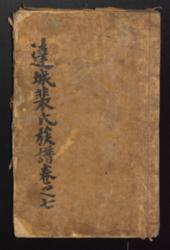 達城裴氏族譜卷之七